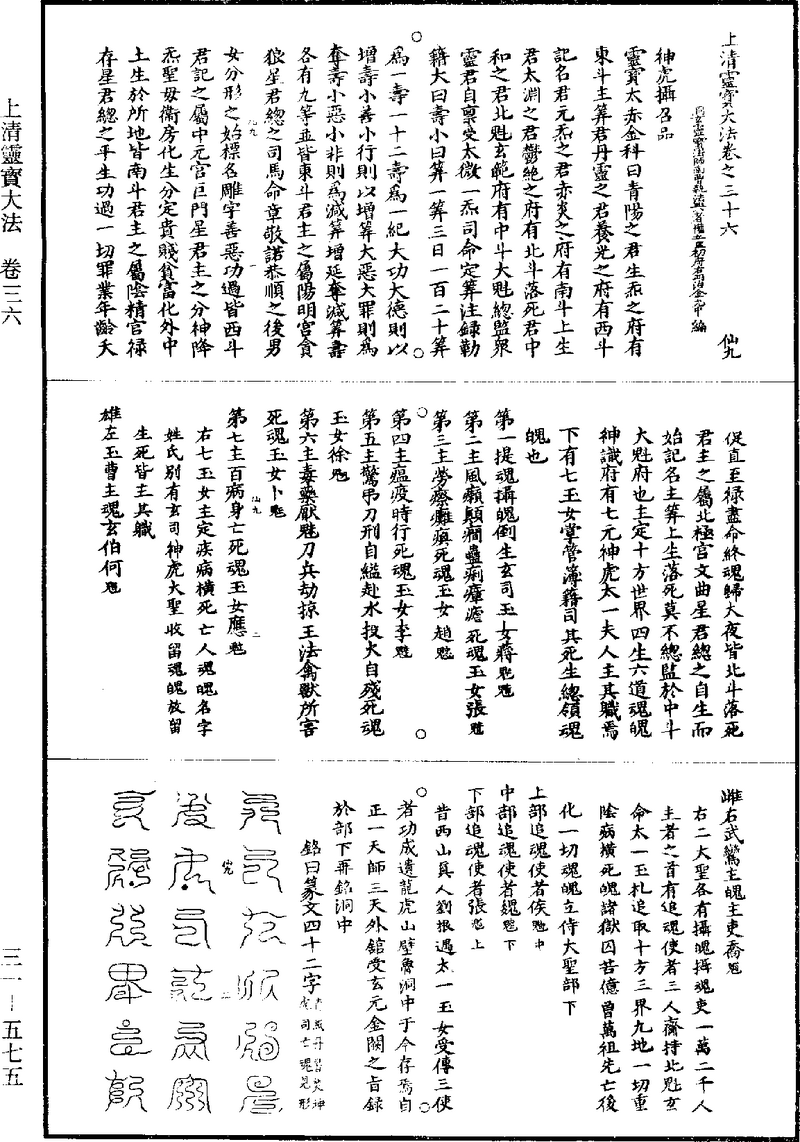 上清靈寶大法 卷三六
三一-五七五
上清靈寶大法卷之三十六 仙九
編
神虎攝召品
靈寶太赤金科曰青陽之君生炁之府有
東斗主筭君丹靈之君養光之府有西斗
記名君元炁之君赤炎之府有南斗上生
君太淵之君鬱絶之府有北斗落死君中
和之君北魁玄範府有中斗大魁總監衆
靈君自稟受太微一炁司命定筭注録勒
籍大曰壽小曰筭一筭三日一百二十筭
爲一壽一十二壽爲一紀大功大德則以
增壽小善小行則以增筭大惡大罪則爲
奪壽小惡小非則爲減筭增延奪減筭壽
各有九等並皆東斗君主之屬陽明宮貪
狼星君總之司馬命章敬諾恭順之後男
女分形之始標名雕字善惡功過皆西斗
君記之屬中元宮巨門星君主之分神降
炁聖毋衛房化生分定貴賤貧富化外中
土生於所地皆南斗君主之屬陰精宮禄
存星君總之平生功過一切罪業年齡夭
促直至禄盡命終魂歸大夜皆北斗落死
君主之屬北極宮文曲星君總之自生而
始記名主筭上生落死莫不總監於中斗
大魁府也主定十方世界四生六道魂魄
神識府有七元神虎太一夫人主其職焉
下有七玉女掌管簿籍司其死生總領魂
魄也
第一提魂攝魄倒生玄司玉女蔣
第二主風癩顛癇蠱痢瘴瘧死魂玉女張
第三主勞瘵癱瘓死魂玉女趙
第四主瘟疫時行死魂玉女李
第五主驚弔刀刑自縊赴水投火自殘死魂
玉女徐
第六主毒藥厭魅刀兵劫掠王法禽獸所害
死魂玉女卜
第七主百病身亡死魂玉女應
右七玉女主定疾病横死亡人魂魄名字
姓氏别有玄司神虎大聖收留魂魄放留
生死皆主其職
雄左玉曹主魂玄伯何
雌右武鸞主魄主吏喬
右二大聖各有攝魄攝魂吏一萬二千人
主者之首有追魂使者三人齎持北魁玄
命太一玉札追取十方三界九地一切重
陰病横死魄諸獄囚苦億曾萬祖先亡後
化一切魂魄立侍大聖部下
上部追魂使者侯 中
中部追魂使者魏 下
下部追魂使者張 上
昔西山眞人劉根遇太一玉女受傳三使
者功成遺龍虎山壁魯洞中于今存焉自
正一天師三天外館受玄元金闕之旨録
於部下再銘洞中
銘曰篆文四十二字